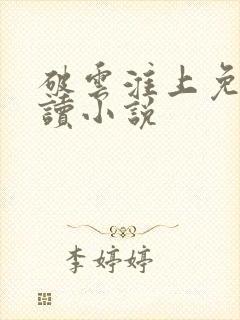 破雲淮上免
讀小說
李婷婷